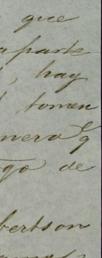 que
aparte
, hay
tomen
nero
go de
bertson